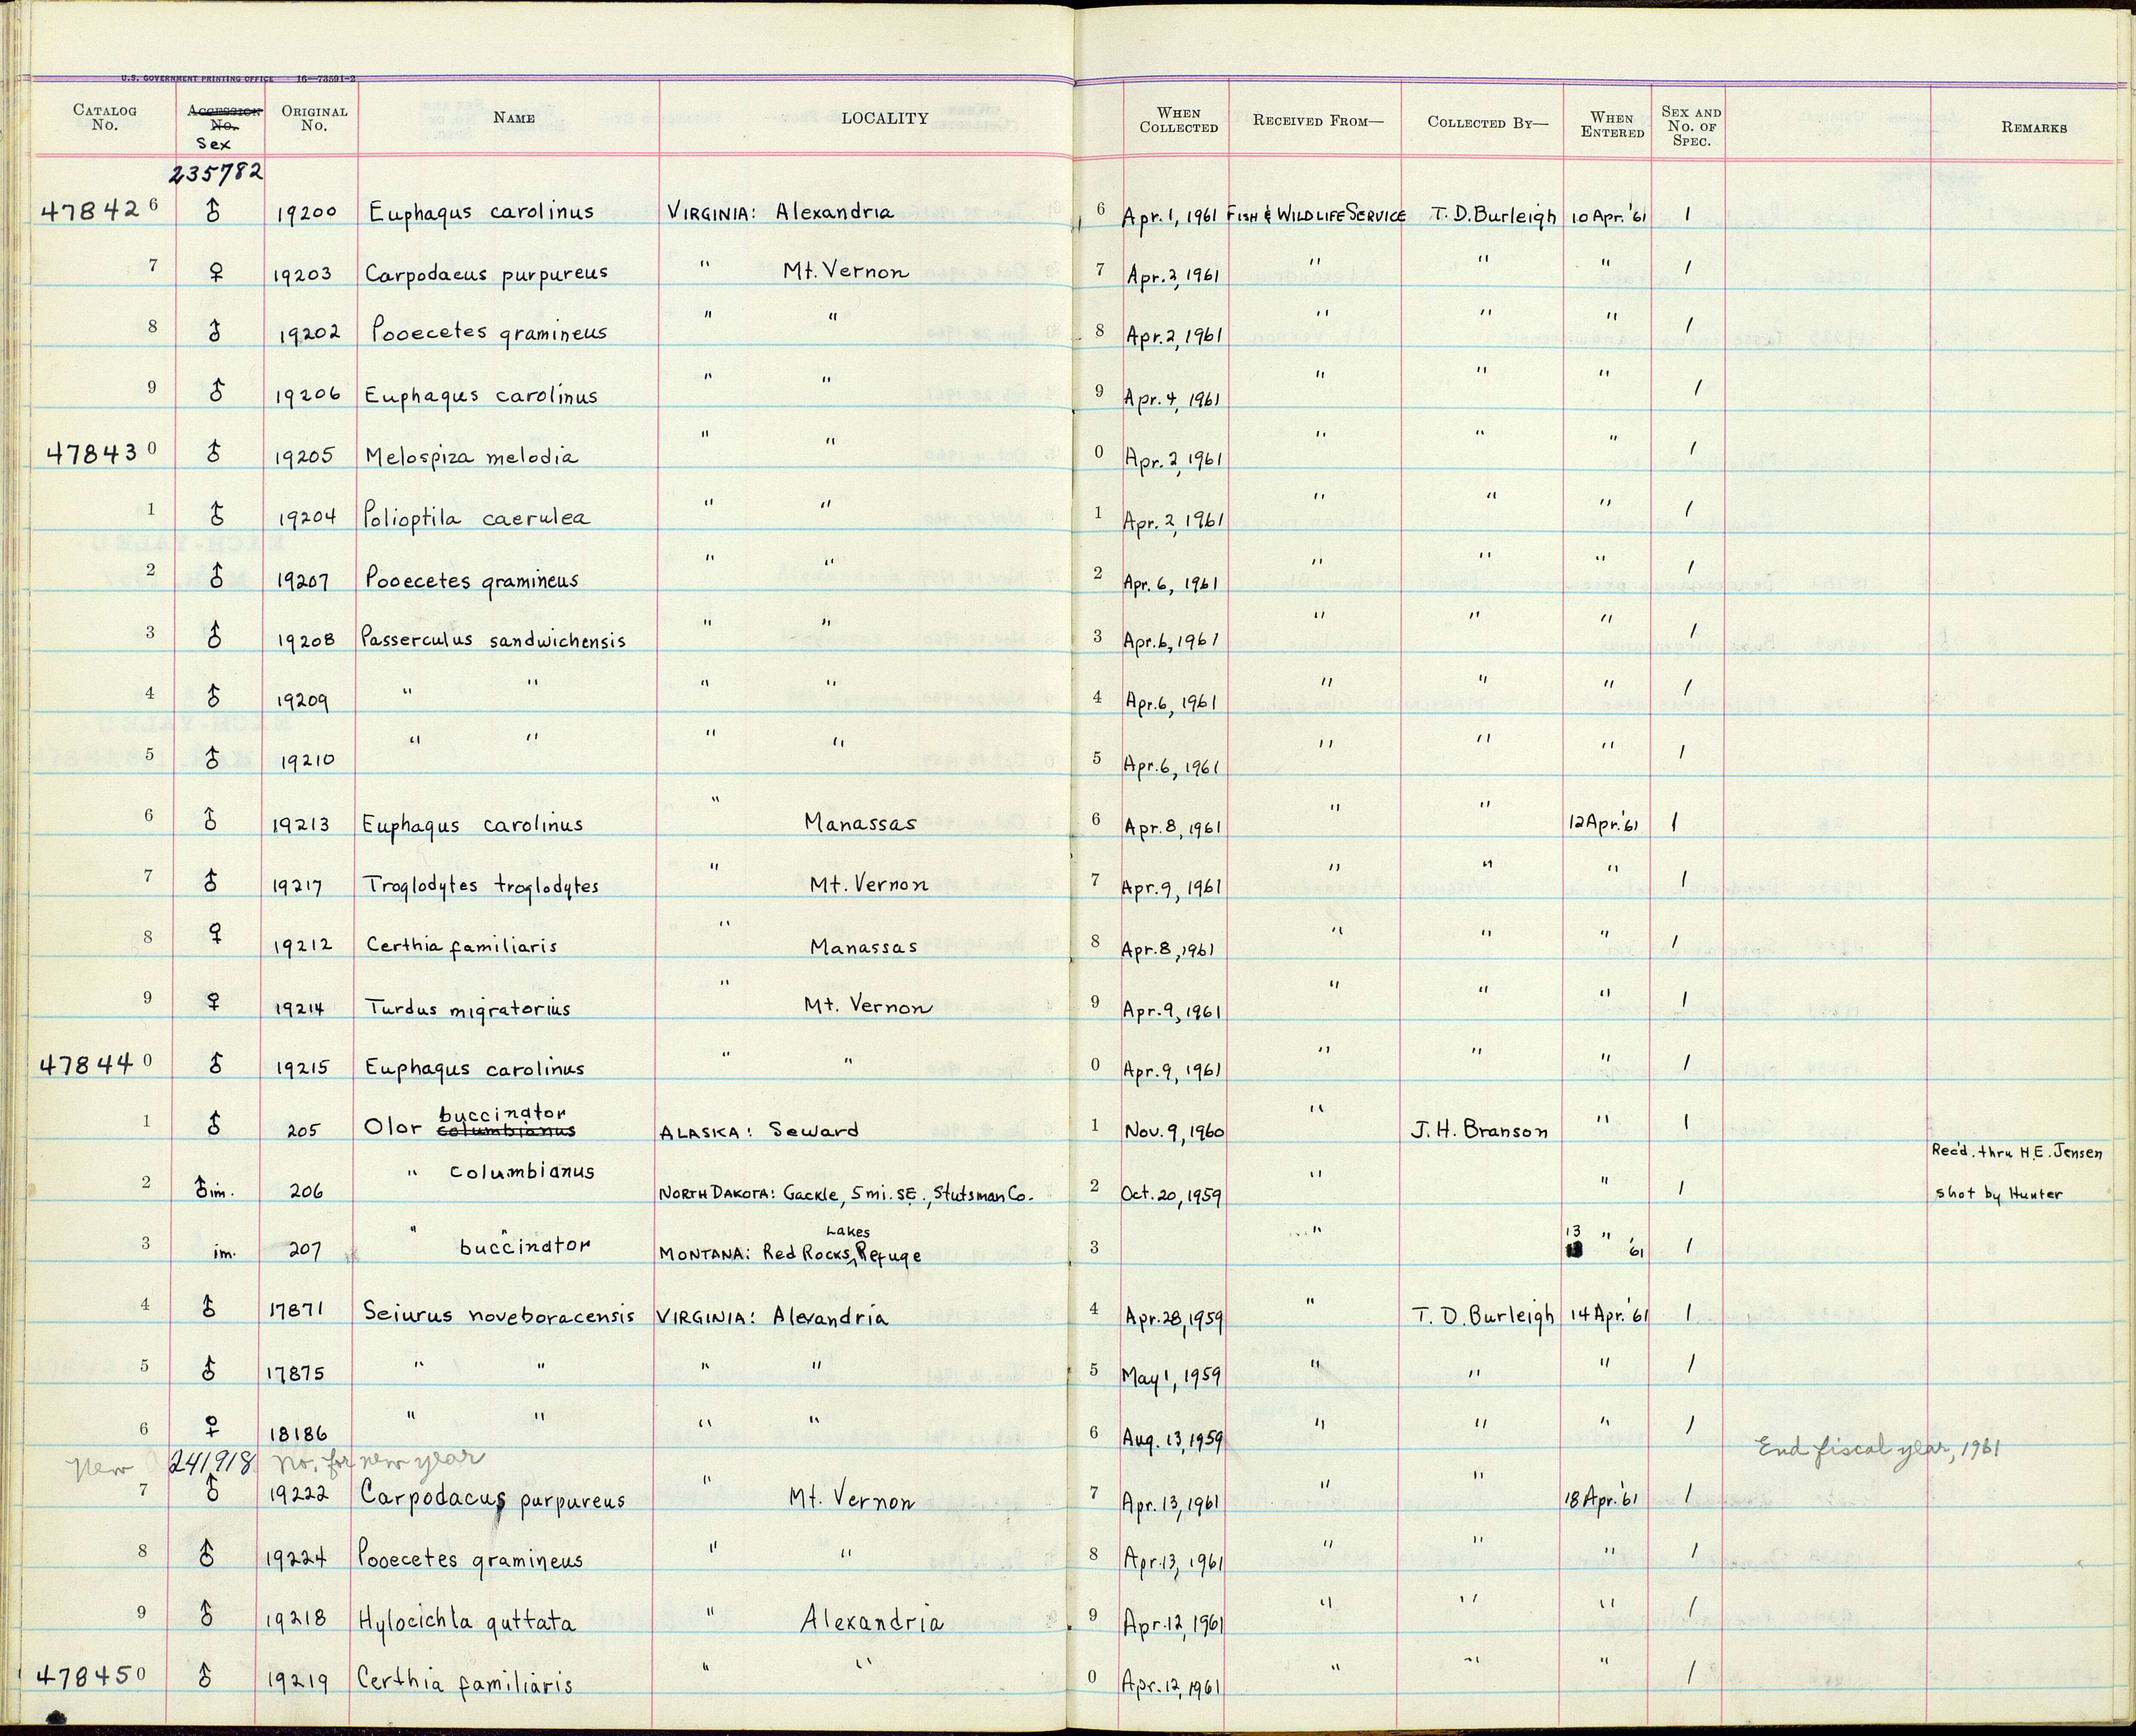 U.S. GOVERNMENT PRINTING OFFICE 16—73591-2
CATALOG No. ACCESSION No. Sex ORIGINAL No. NAME LOCALITY WHEN COLLECTED RECEIVED FROM— COLLECTED BY— WHEN ENTERED SEX AND No. OF SPEC. REMARKS
235782
47842 6 ♂ 19200 Euphagus carolinus VIRGINIA: Alexandria 6 Apr. 1, 1961 FISH & WILDLIFE SERVICE T. D. Burleigh 10 Apr. '61 1
7 ♀ 19203 Carpodacus purpureus " Mt. Vernon 7 Apr. 2, 1961 " " " 1
8 ♂ 19202 Pooecetes gramineus " " 8 Apr. 2, 1961 " " " 1
9 ♂ 19206 Euphagus carolinus " " 9 Apr. 4, 1961 " " " 1
47843 0 ♂ 19205 Melospiza melodia " " 0 Apr. 2, 1961 " " " 1
1 ♂ 19204 Polioptila caerulea " " 1 Apr. 2, 1961 " " " 1
2 ♂ 19207 Pooecetes gramineus " " 2 Apr. 6, 1961 " " " 1
3 ♂ 19208 Passerculus sandwichensis " " 3 Apr. 6, 1961 " " " 1
4 ♂ 19209 " " " " 4 Apr. 6, 1961 " " " 1
5 ♂ 19210 " " " " 5 Apr. 6, 1961 " " " 1
6 ♂ 19213 Euphagus carolinus " Manassas 6 Apr. 8, 1961 " " 12 Apr. '61 1
7 ♂ 19217 Troglodytes troglodytes " Mt. Vernon 7 Apr. 9, 1961 " " " 1
8 ♀ 19212 Certhia familiaris " Manassas 8 Apr. 8, 1961 " " " 1
9 ♀ 19214 Turdus migratorius " Mt. Vernon 9 Apr. 9, 1961 " " " 1
47844 0 ♂ 19215 Euphagus carolinus " " 0 Apr. 9, 1961 " " " 1
buccinator
1 ♂ 205 Olor columbianus ALASKA: Seward 1 Nov. 9, 1960 " J. H. Branson " 1
Rec'd. thru H. E. Jensen
2 ♂ im. 206 " columbianus NORTH DAKOTA: Gackle, 5 mi. SE., Stutsman Co. 2 Oct. 20, 1959 " " 1 shot by Hunter
Lakes
3 im. 207 " buccinator MONTANA: Red Rocks, Refuge 3 " 13 " '61 1
4 ♂ 17871 Seiurus noveboracensis VIRGINIA: Alexandria 4 Apr. 28, 1959 " T. D. Burleigh 14 Apr. '61 1
5 ♂ 17875 " " " " 5 May 1, 1959 " " " 1
6 ♀ 18186 " " " " 6 Aug. 13, 1959 " " " 1
New 241918 No. for new year End fiscal year, 1961
7 ♂ 19222 Carpodacus purpureus " Mt. Vernon 7 Apr. 13, 1961 " " 18 Apr. '61 1
8 ♂ 19224 Pooecetes gramineus " " 8 Apr. 13, 1961 " " " 1
9 ♂ 19218 Hylocichla guttata " Alexandria 9 Apr. 12, 1961 " " " 1
47845 0 ♂ 19219 Certhia familiaris " " 0 Apr. 12, 1961 " " " 1